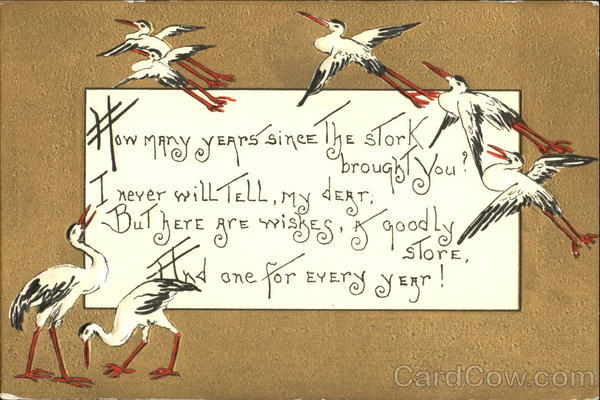 How many years since the stork
brought you?
I never will tell, my dear,
But here are wishes, a goodly
store,
And one for every year!
CardCow.com